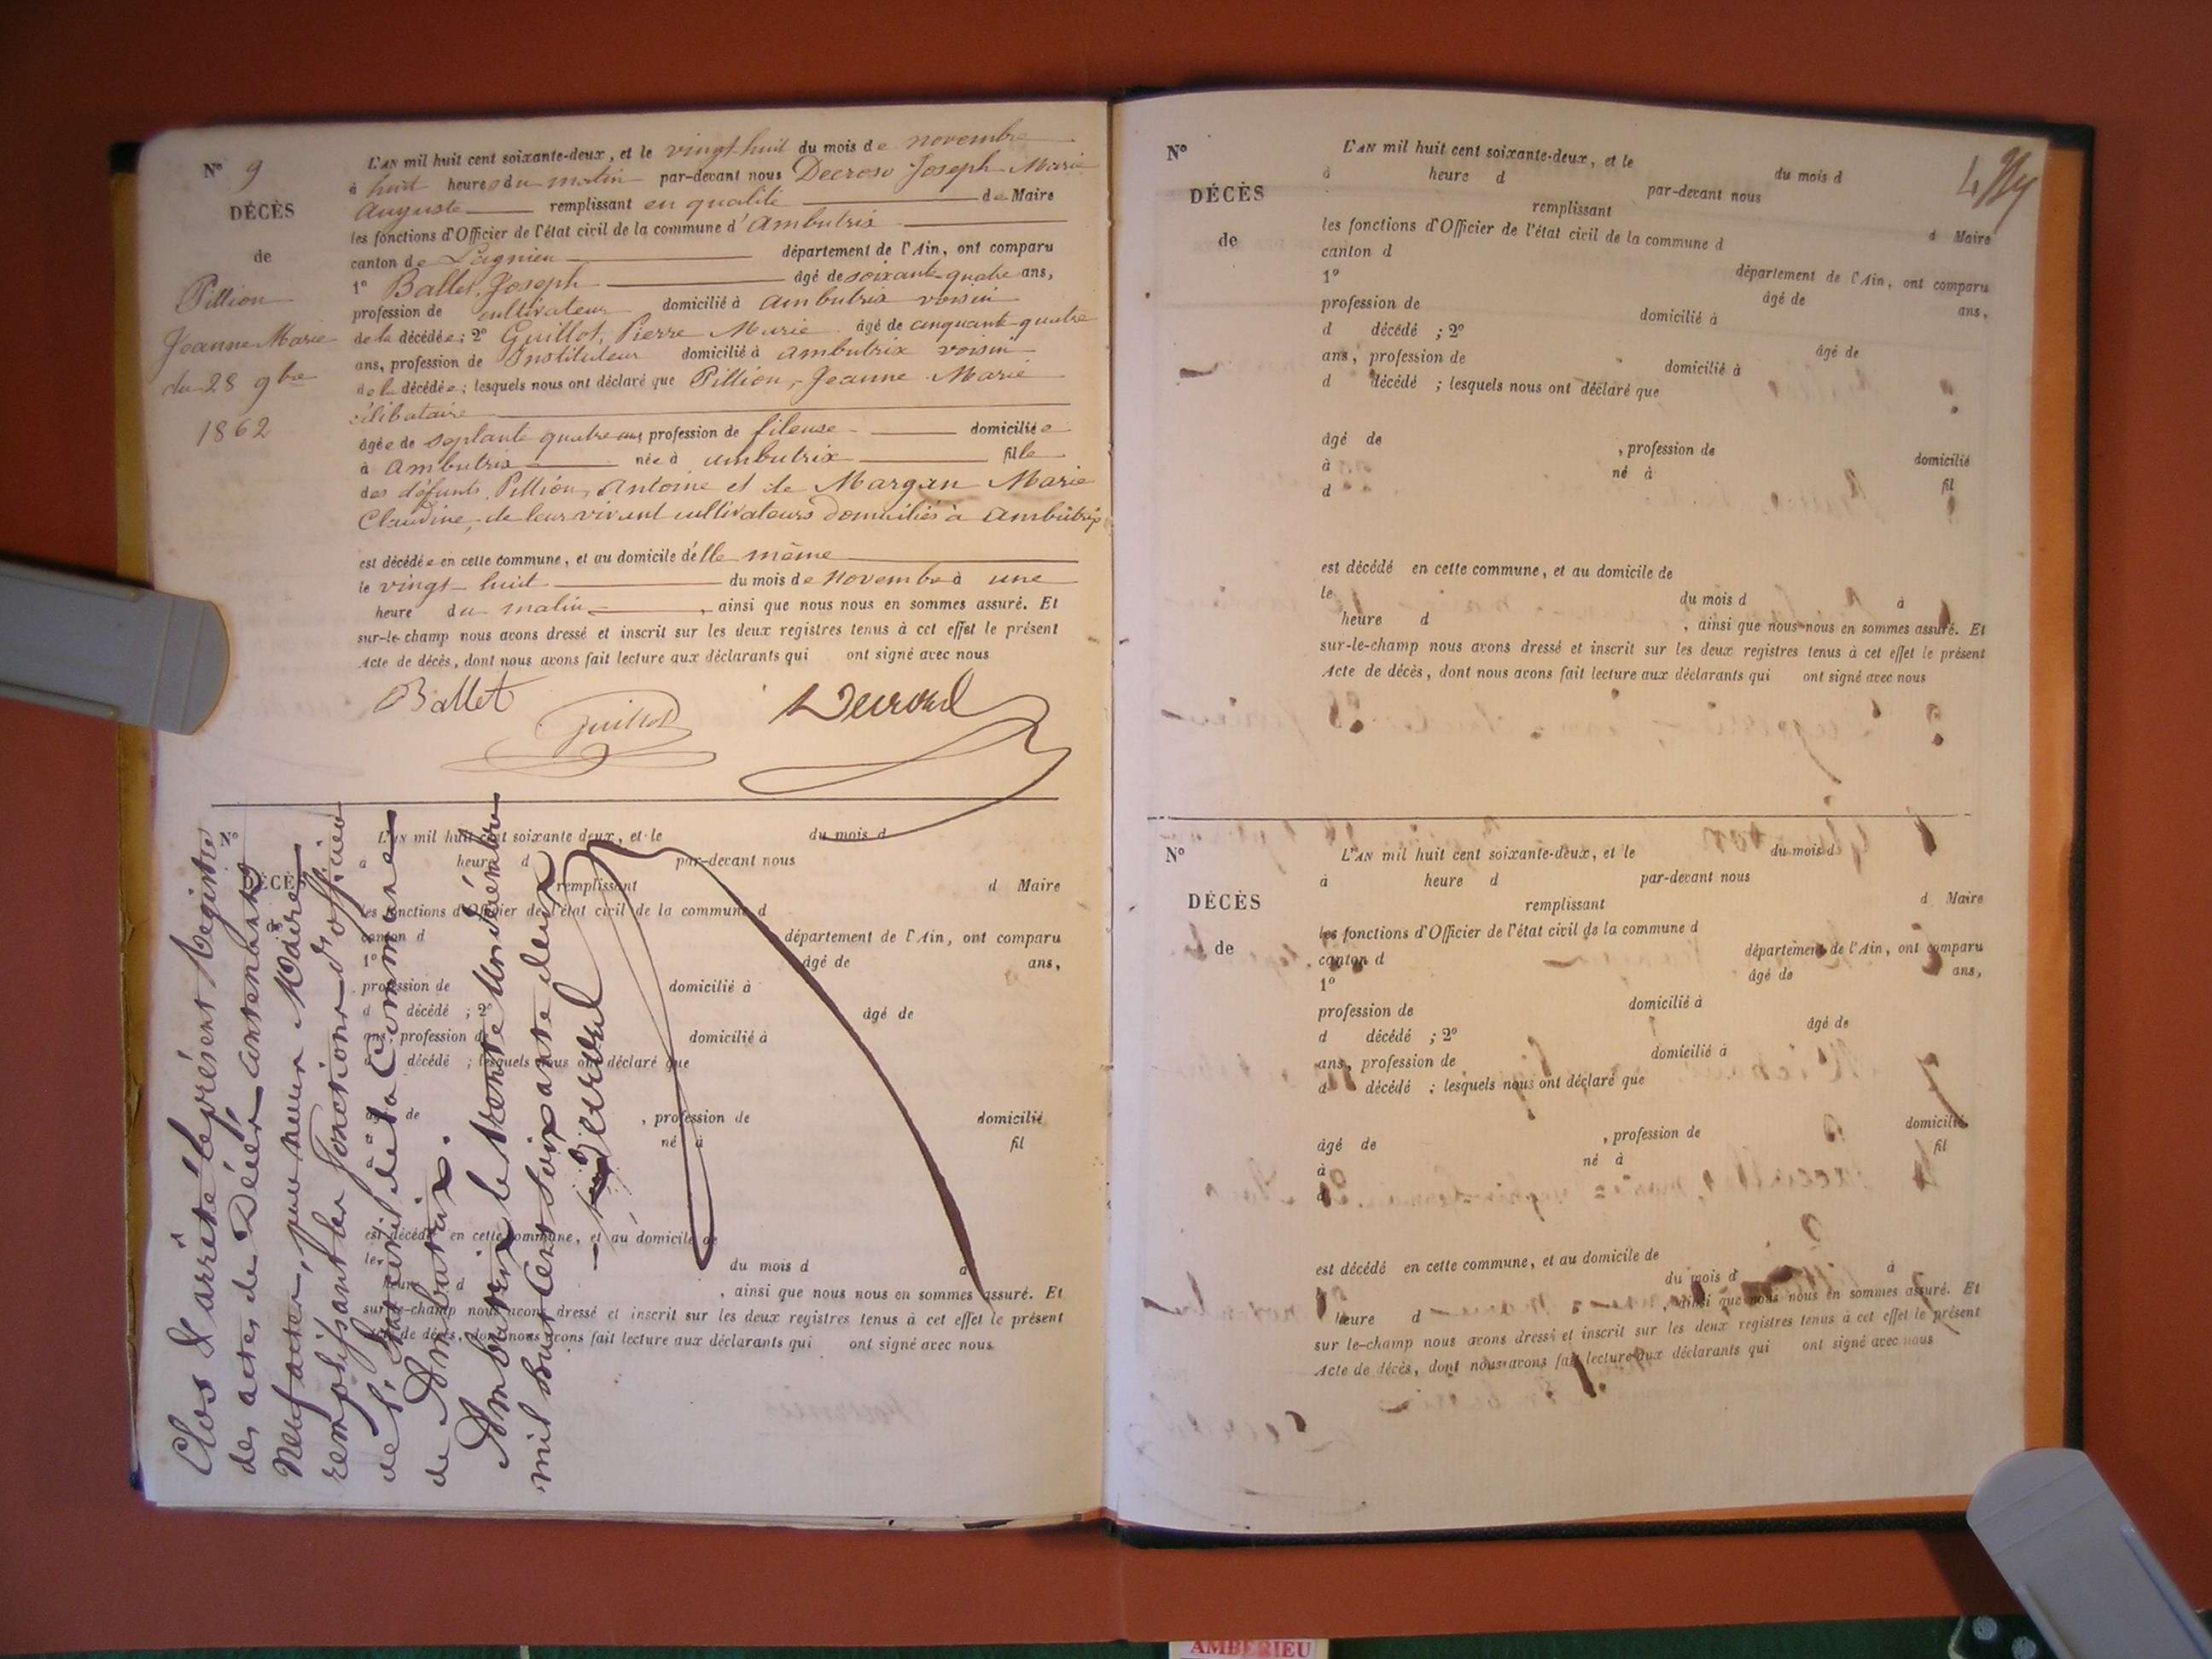 N° 9
DÉCÈS
de
Pillion
Jeanne Marie
du 28 9bre
1862
L'AN mil huit cent soixante-deux, et le vingt huit du mois de novembre
à huit heures du matin par-devant nous Decroso Joseph Marie
Auguste remplissant en qualité de Maire
les fonctions d'Officier de l'état civil de la commune d'Ambutrix
canton de Lagnieu département de l'Ain, ont comparu
1° Ballet, Joseph âgé de soixante quatre ans,
profession de cultivateur domicilié à ambutrix voisin
de la décédée; 2° Guillot, Pierre Marie âgé de cinquante quatre
ans, profession de Instituteur domicilié à ambutrix voisin
de la décédée; lesquels nous ont déclaré que Pillion, Jeanne Marie
célibataire
âgée de septante quatre ans profession de fileuse domiciliée
à Ambutrix née à ambutrix fille
des défunts Pillion, Antoine et de Margan Marie
Claudine, de leur vivant cultivateurs domiciliés à Ambutrix
est décédée en cette commune, et au domicile d'elle même
le vingt huit du mois de novembre à une
heure du matin, ainsi que nous nous en sommes assuré. Et
sur-le-champ nous avons dressé et inscrit sur les deux registres tenus à cet effet le présent
Acte de décès, dont nous avons fait lecture aux déclarants qui ont signé avec nous
Ballet
Guillot
N°
DÉCÈS
L'AN mil huit cent soixante deux, et le du mois d
à heure d par-devant nous
remplissant d Maire
les fonctions d'Officier de l'état civil de la commune d
canton d département de l'Ain, ont comparu
1° âgé de ans,
profession de domicilié à
d décédé ; 2° âgé de
ans, profession de domicilié à
d décédé ; lesquels nous ont déclaré que
âgé de , profession de domicilié
à né à fil
est décédé en cette commune, et au domicile de
le du mois d à
heure d , ainsi que nous nous en sommes assuré. Et
sur-le-champ nous avons dressé et inscrit sur les deux registres tenus à cet effet le présent
Acte de décès, dont nous avons fait lecture aux déclarants qui ont signé avec nous
Clos & arrêté le présent Registre
des actes de Décès contenant
Neuf actes, par nous Maire
remplissant les fonctions d'officier
de l'état civil de la Commune
de Ambutrix.
Ambutrix le trente un Décembre
mil huit cent soixante deux
N°
DÉCÈS
de
L'AN mil huit cent soixante-deux, et le du mois d
à heure d par-devant nous
remplissant d Maire
les fonctions d'Officier de l'état civil de la commune d
canton d département de l'Ain, ont comparu
1° âgé de ans,
profession de domicilié à
d décédé ; 2° âgé de
ans, profession de domicilié à
d décédé ; lesquels nous ont déclaré que
âgé de , profession de domicilié
à né à fil
d
est décédé en cette commune, et au domicile de
le du mois d à
heure d , ainsi que nous nous en sommes assuré. Et
sur-le-champ nous avons dressé et inscrit sur les deux registres tenus à cet effet le présent
Acte de décès, dont nous avons fait lecture aux déclarants qui ont signé avec nous
N°
DÉCÈS
de
L'AN mil huit cent soixante-deux, et le du mois d
à heure d par-devant nous
remplissant d Maire
les fonctions d'Officier de l'état civil de la commune d
canton d département de l'Ain, ont comparu
1° âgé de ans,
profession de domicilié à
d décédé ; 2° âgé de
ans, profession de domicilié à
d décédé ; lesquels nous ont déclaré que
âgé de , profession de domicilié
à né à fil
est décédé en cette commune, et au domicile de
du mois d à
heure d , ainsi que nous nous en sommes assuré. Et
sur le-champ nous avons dressé et inscrit sur les deux registres tenus à cet effet le présent
Acte de décès, dont nous avons fait lecture aux déclarants qui ont signé avec nous
AMBERIEU